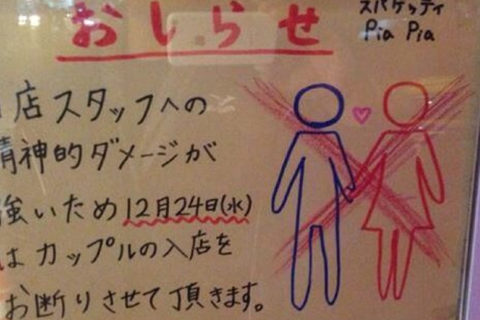 おしらせ
スパゲッティ
Pia Pia
店スタッフへの
精神的ダメージが
強いため12月24日(水)
はカップルの入店を
お断りさせて頂きます。